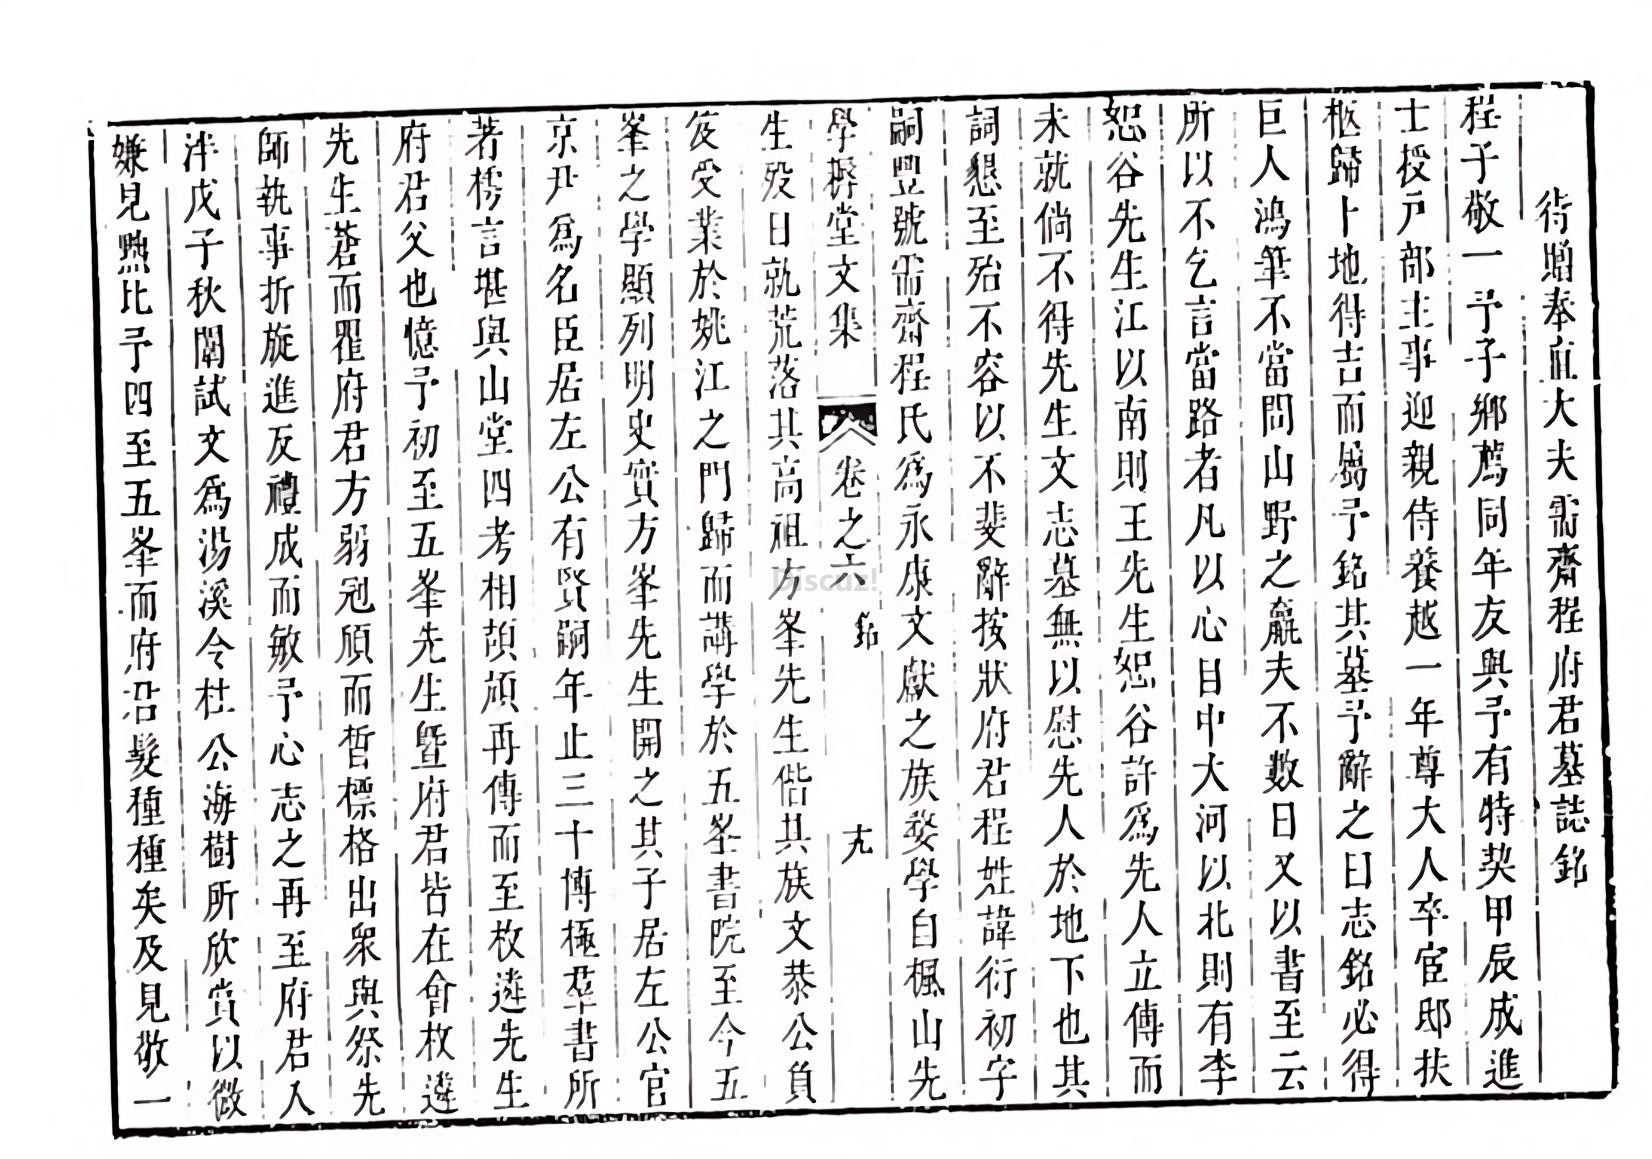 待贈奉直大夫需齋程府君墓誌銘
程子敬一予子鄉薦同年友與予有特契甲辰成進
士授戸部主事迎親侍養越一年尊大人卒宦邸扶
柩歸卜地得吉而屬予銘其墓予辭之曰志銘必得
巨人鴻筆不當問山野之麤夫不数日又以書至云
所以不乞言當路者凡以心目中大河以北則有李
恕谷先生江以南則王先生恕谷許為先人立傳而
未就倘不得先生文志墓無以慰先人於地下也其
詞懇至殆不容以不斐辭按狀府君程姓諱衍初字
嗣豐號需齋程氏為永康文獻之族婺學自楓山先
學耨堂文集 卷之六 銘 十九
生歿日就荒落其高祖方峯先生偕其族文恭公負
笈受業於姚江之門歸而講學於五峯書院至今五
峯之學顯列明史實方峯先生開之其子居左公官
京尹為名臣居左公有賢嗣年止三十博極羣書所
著樗言堪與山堂四考相頡頏再傳而至枚遴先生
府君父也憶予初至五峯先生暨府君皆在會枚遴
先生蒼而瞿府君方弱冠頎而晳標格出衆與祭先
師執事折旋進反禮成而敏予心志之再至府君入
泮戊子秋闈試文為湯溪令杜公海樹所欣賞以微
嫌見黜比予四至五峯而府君髮種種矣及見敬一
Discuz!